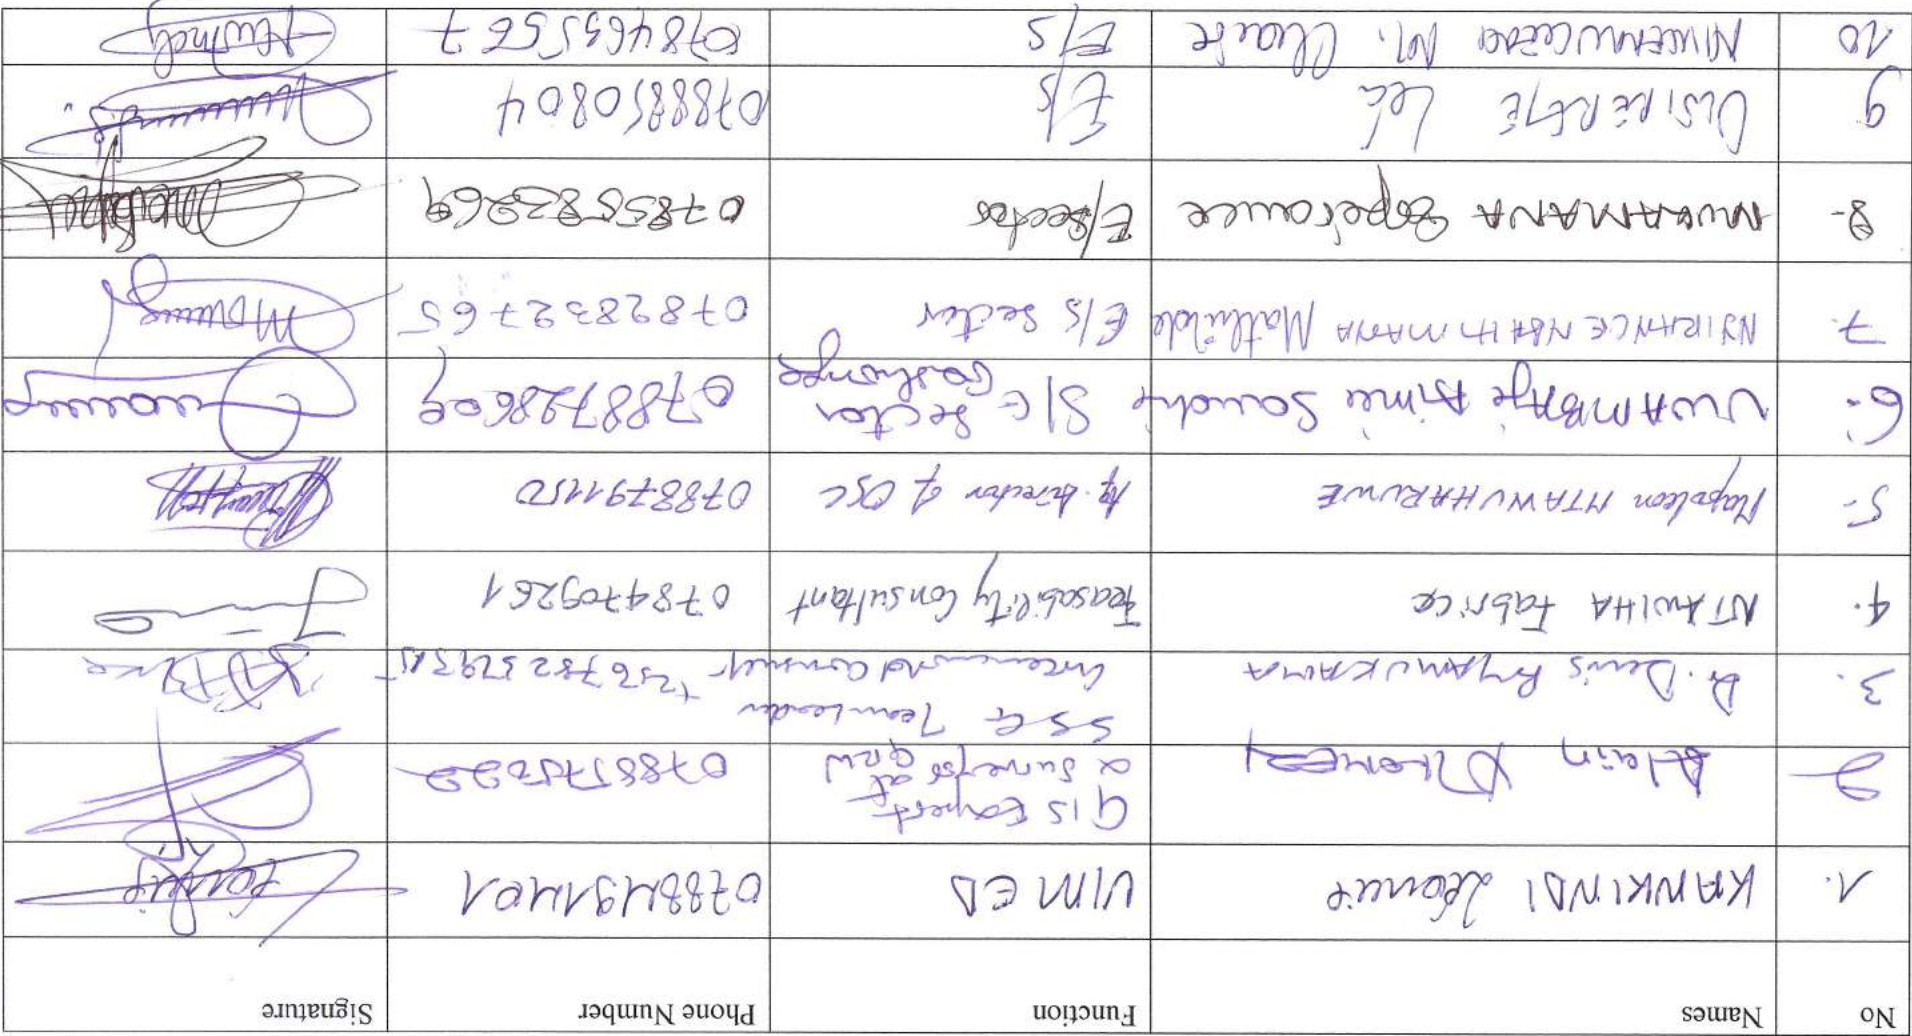 No Names Function Phone Number Signature
1. KANKINDI Léoncie VIMED 0788491401
2 Alain GIS Expert
& Surveyor at
GRW 0788575022
3. Dr. Denis BYAMUKAMA SSG Team Leader
Greenworld Consult +256782379315
4. NTAWIHA Fabrice Feasability Consultant 0784709261
5. Napoleon NTAWUHARUWE Ag. Director of OSC 0788791150
6. UWAMBAJE Aimée Sandrine S/E Sector
Gashonga 0788728609
7. NYIRANGENDAHIMANA Mathilde E/S Sector 0782832765
8- MUKAMANA Espérance E/Sector 0785583269
9 USIRERETE Léa E/S 0788850804
10 M. Claire E/S 0784635567